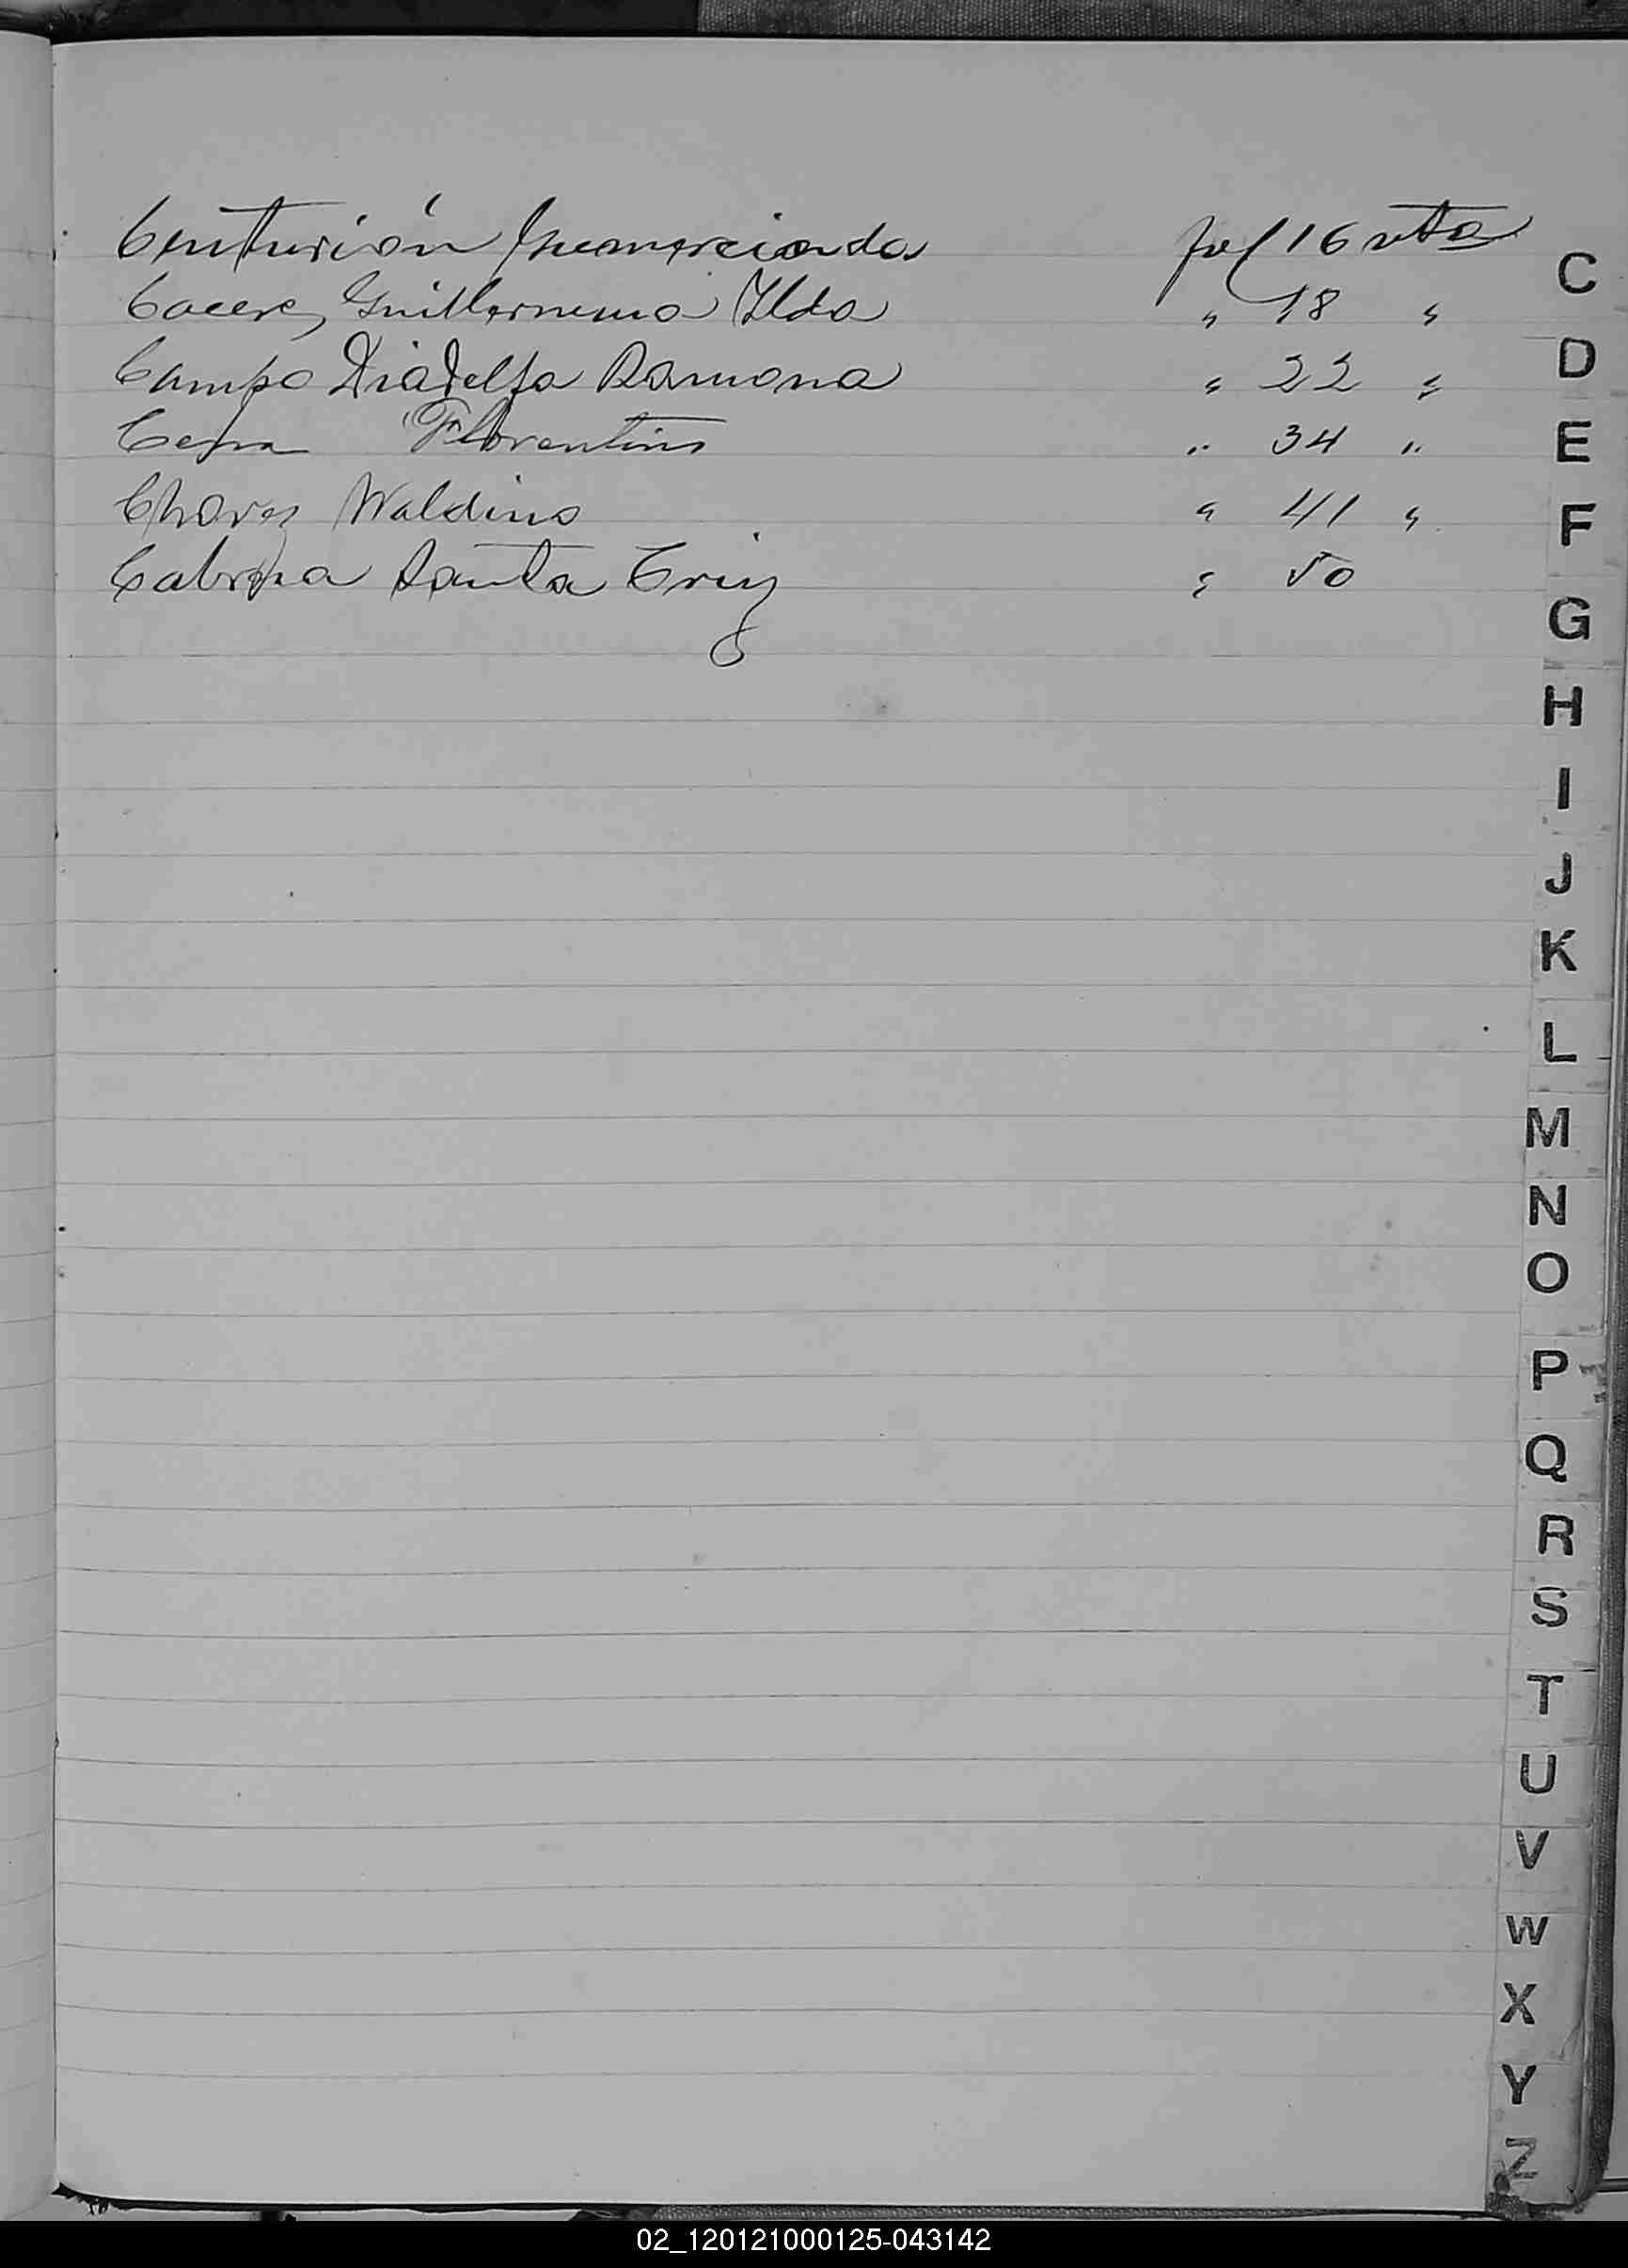 Centurión Gumercinda fol 16 vta
Caceres Guillermina Ilda " 18 "
Campo Diadelfa Ramona " 22 "
Cepa Florentino " 34 "
Chavez Waldino " 41 "
Cabrera Santa Cruz " 50
C
D
E
F
G
H
I
J
K
L
M
N
O
P
Q
R
S
T
U
V
W
X
Y
Z
02_120121000125-043142